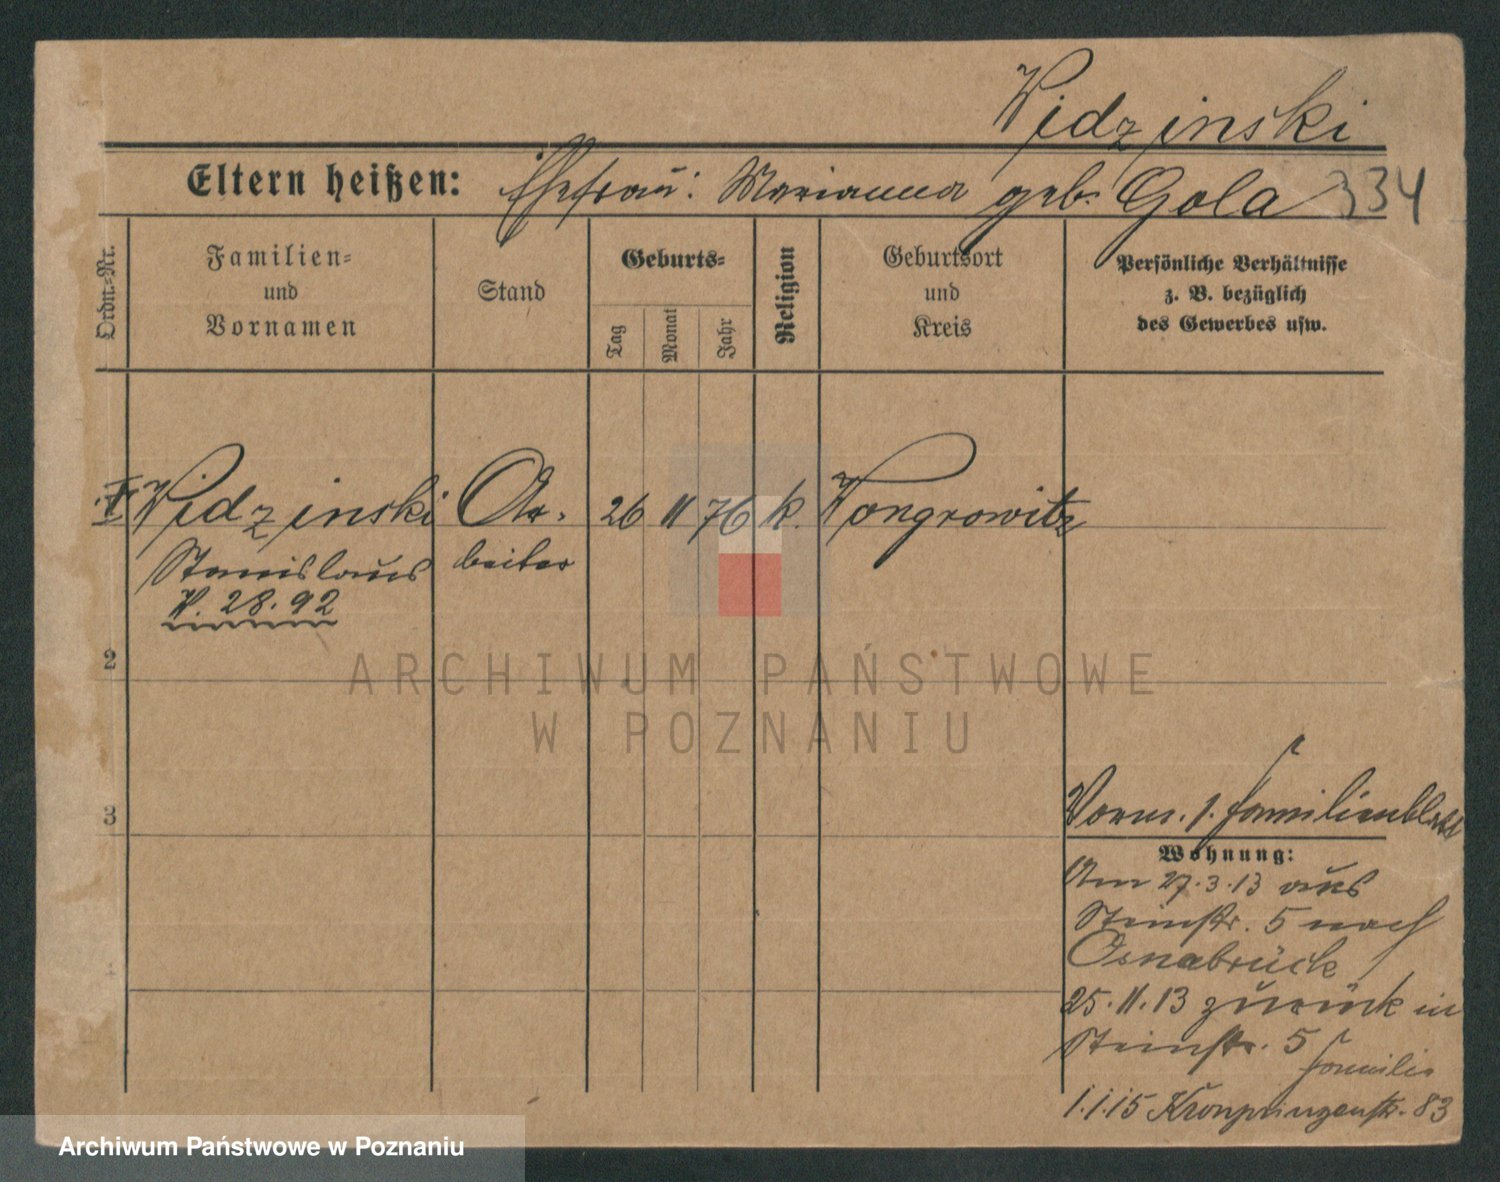 Widzinski
Eltern heißen: Ehefrau: Marianna geb. Gola 334
Ordn.-Nr.
Familien-
und
Vornamen
Stand
Geburts-
Tag
Monat
Jahr
Religion
Geburtsort
und
Kreis
Persönliche Verhältnisse
z. B. bezüglich
des Gewerbes usw.
Widzinski Ar- 26 11 76 k. Wongrowitz
Stanislaus beiter
W. 28.92
2
3
Vorm. s. Familienblatt
Wohnung:
Am 27.3.13 aus
Steinstr. 5 nach
Osnabrück
25.11.13 zurück in
Steinstr. 5
Familie
1.1.15 Kronprinzenstr. 83
ARCHIWUM PAŃSTWOWE
W POZNANIU
Archiwum Państwowe w Poznaniu